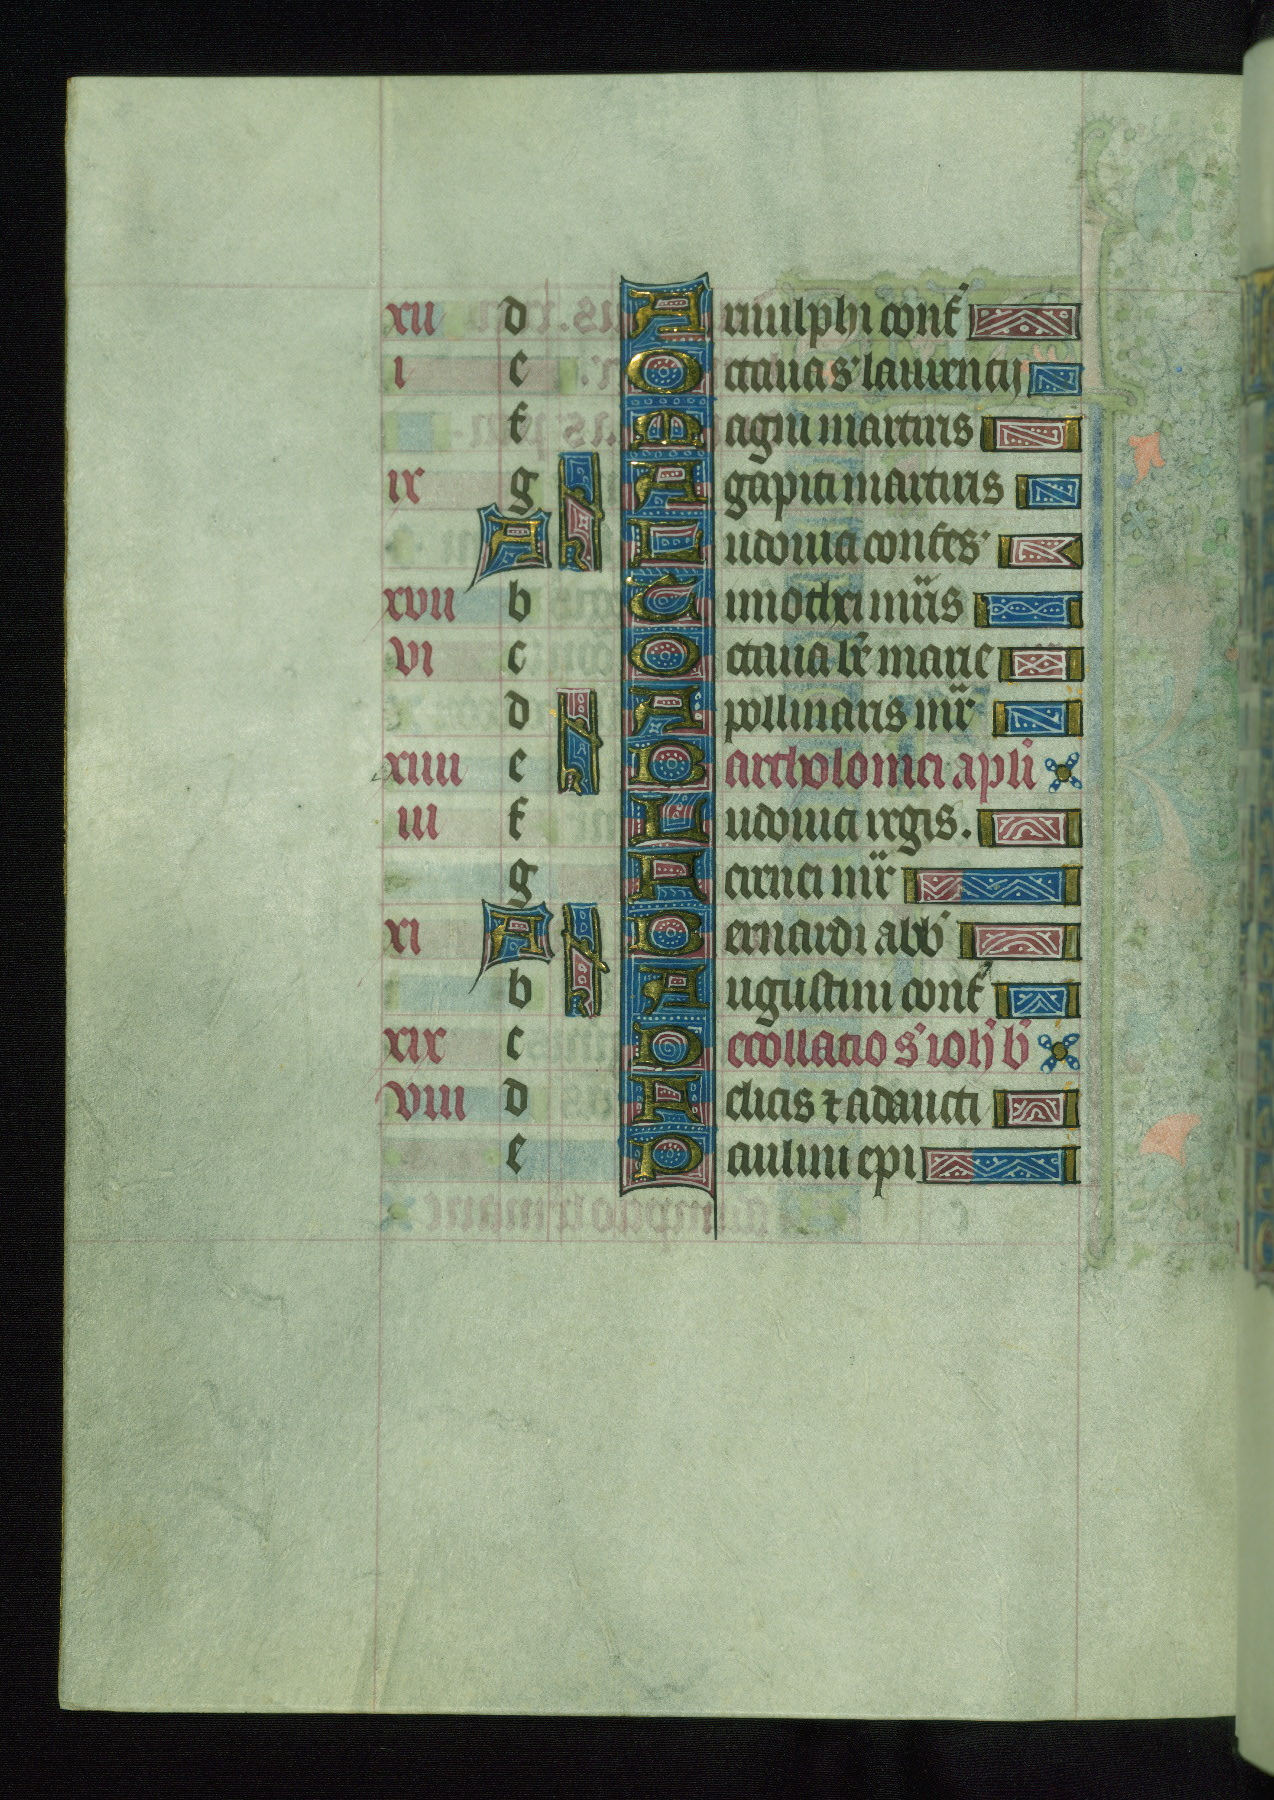 xii d Arnulphi conf̃
i e Octauas laurencij
f Magni martiris
ix g Agapiti martiris
A Ludouici confes
xvii b Timothei mr̃is
vi c Octaua bẽ marie
d Apollinaris mr̃
xiiii e Bartholomei apli
iii f Ludouici regis.
g Hernei mr̃
xi A Bernardi abb
b Augustini conf̃
xix c Decollatio s ioh b
viii d Felicis ⁊ adaucti
e Paulini epi